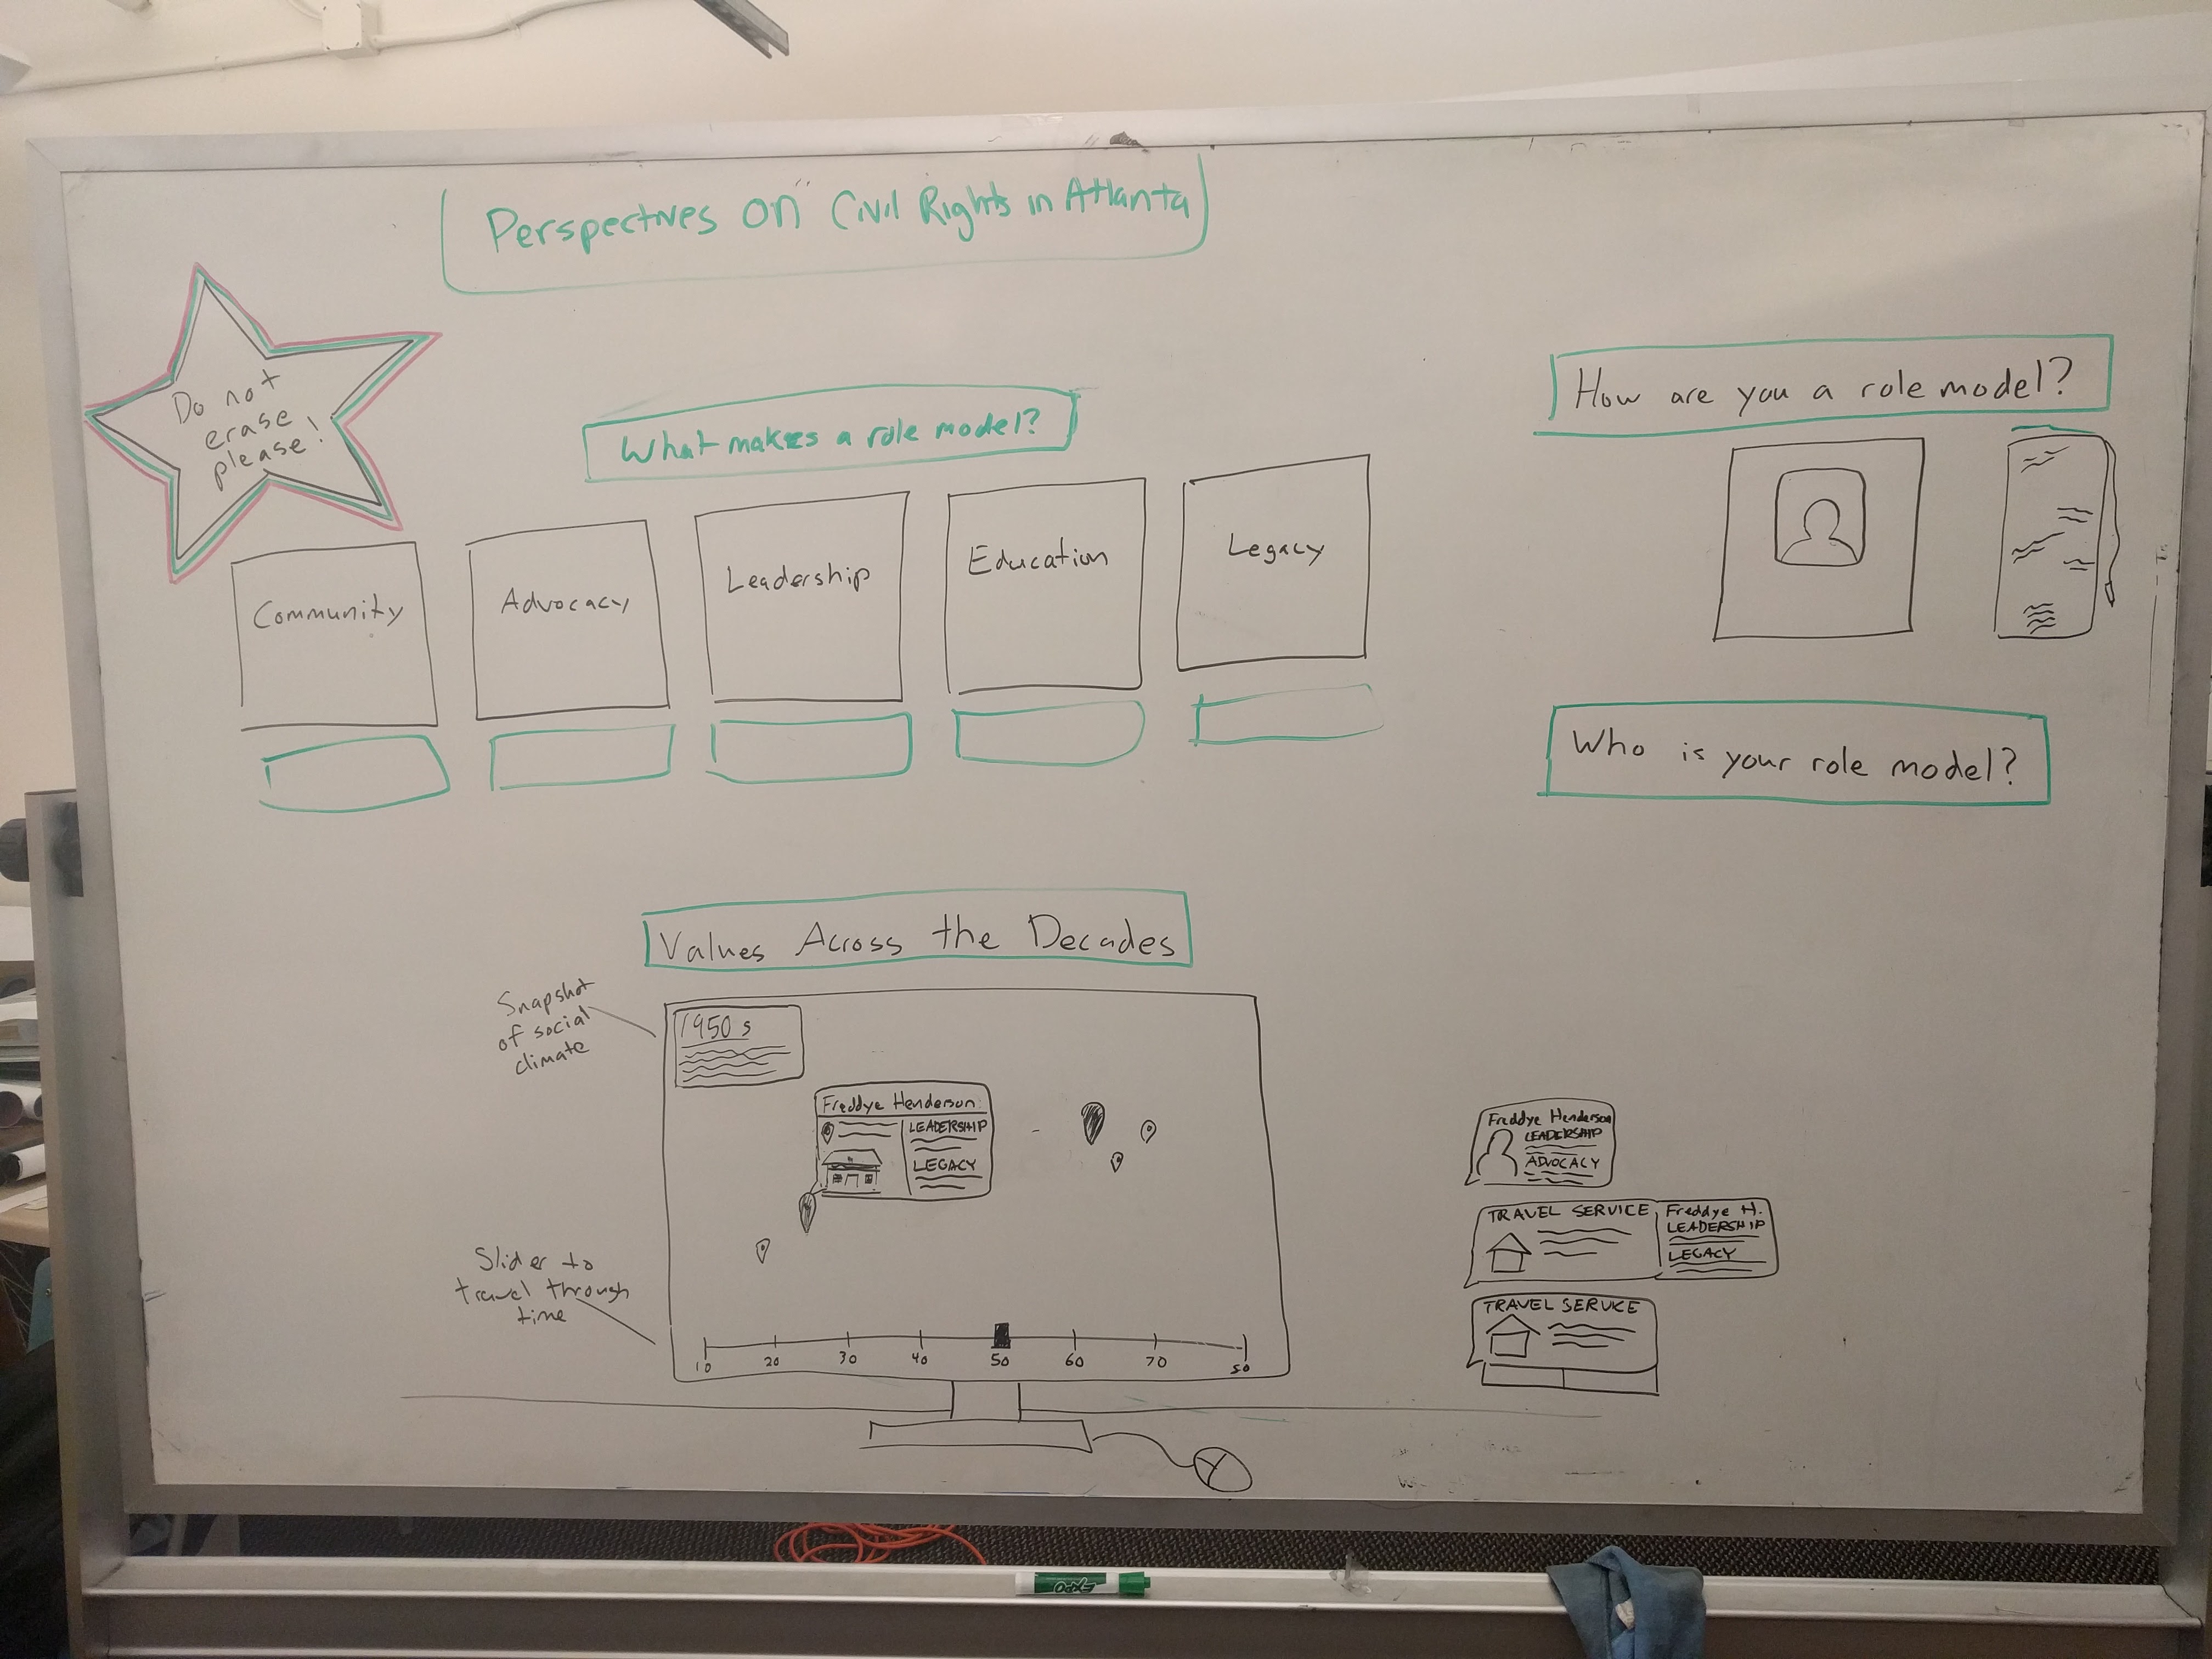 Perspectives on Civil Rights in Atlanta
Do not
erase
please!
What makes a role model?
Community
Advocacy
Leadership
Education
Legacy
How are you a role model?
Who is your role model?
Values Across the Decades
Snapshot
of social
climate
1950s
Freddye Henderson
LEADERSHIP
LEGACY
Slider to
travel through
time
10 20 30 40 50 60 70 80
Freddye Henderson
LEADERSHIP
ADVOCACY
TRAVEL SERVICE
Freddye H.
LEADERSHIP
LEGACY
TRAVEL SERVICE
EXPO